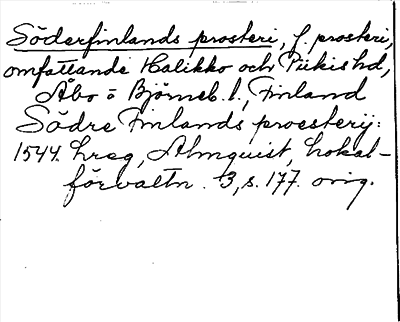 Söderfinlands prosteri, f. prosteri,
omfattande Halikko och Piikis hd,
Åbo o Björneb. l., Finland
Södre Finlands proesterij:
1544. hreg, Almquist, Lokal-
förvaltn. 3, s. 177. orig.